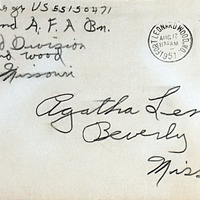 US 55150471
nd A. F. A Bn.
d Division
nd wood
Missouri
FORT LEONARD WOOD, MO.
AUG 1
1951
Agatha Len
Beverly
Miss